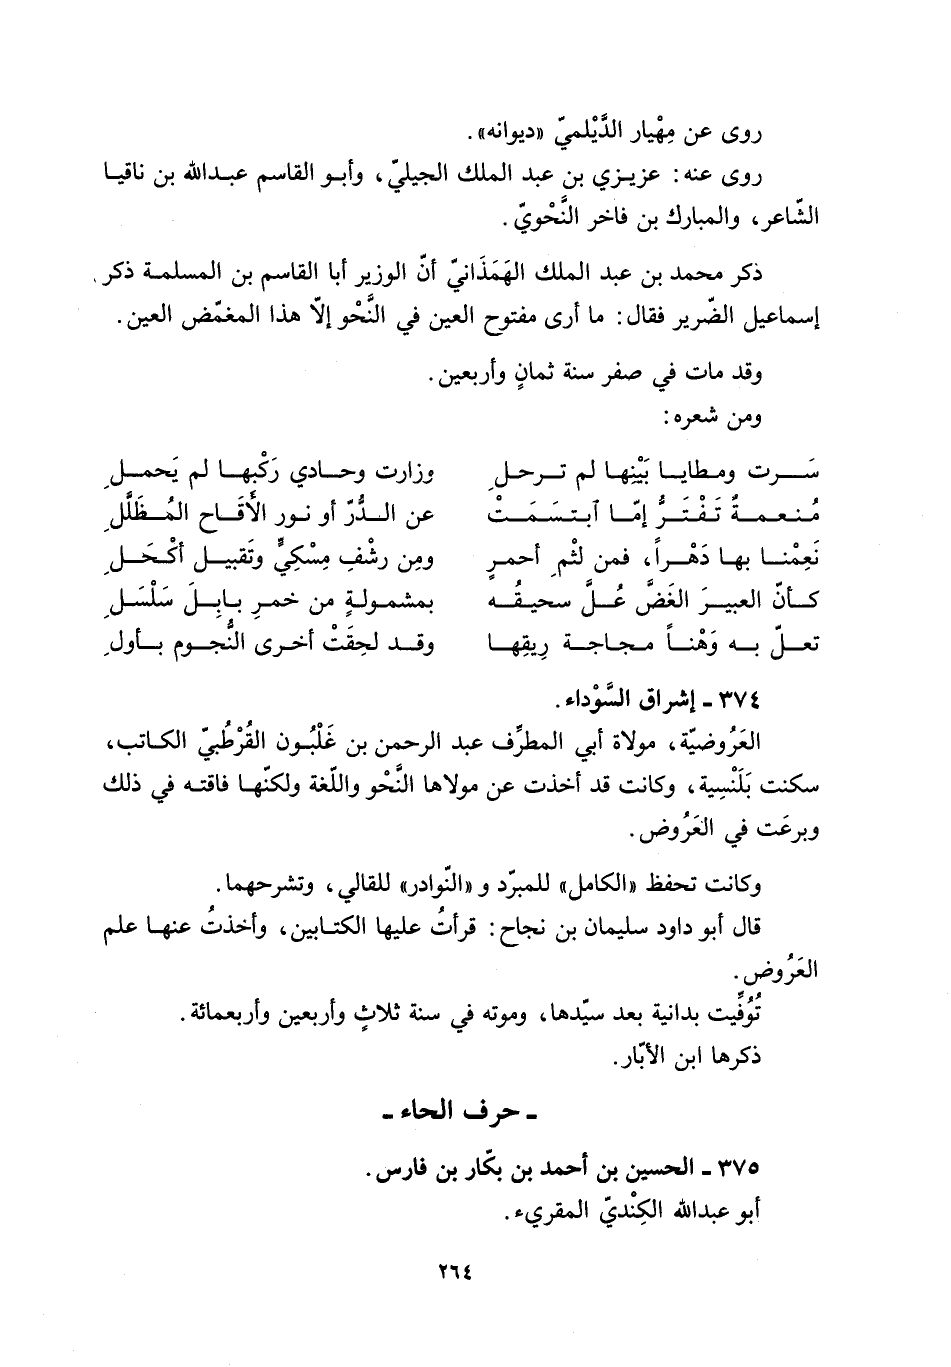 روى عن مِهْيار الدَّيْلميّ «ديوانه».
روى عنه: عزيزي بن عبد الملك الجيليّ، وأبو القاسم عبدالله بن ناقيا
الشّاعر، والمبارك بن فاخر النَّحْويّ.
ذكر محمد بن عبد الملك الهَمَذَانيّ أنّ الوزير أبا القاسم بن المسلمة ذكر
إسماعيل الضّرير فقال: ما أرى مفتوح العين في النَّحْو إلّا هذا المغمّض العين.
وقد مات في صفر سنة ثمانٍ وأربعين.
ومن شعره:
سَرت ومطايا بَيْنِها لم ترحلِ وزارت وحادي رَكْبِها لم يَحملِ
مُنعمةٌ تَفْتَرُّ إمّا ٱبتسَمَتْ عن الدُّرّ أو نور الأَقَاح المُظَلَّلِ
نَعِمْنا بها دَهْراً، فمن لثْمِ أحمرٍ ومِن رشْفِ مِسْكيٍّ وتَقبيل أكْحَلِ
كأنّ العبيرَ الغَضَّ عُلَّ سحيقُه بمشمولةٍ من خمرِ بابِلَ سَلْسَلِ
تعلّ به وَهْناً مجاجة رِيقِها وقد لحِقَتْ أخرى النُّجوم بأولِ
٣٧٤ - إشراق السَّوْداء.
العَرُوضيّة، مولاة أبي المطرِّف عبد الرحمن بن غَلْبُون القُرْطُبيّ الكاتب،
سكنت بَلَنْسِية، وكانت قد أخذت عن مولاها النَّحْو واللّغة ولكنّها فاقته في ذلك
وبرعَت في العَرُوض.
وكانت تحفظ «الكامل» للمبرّد و«النّوادر» للقالي، وتشرحهما.
قال أبو داود سليمان بن نجاح: قرأتُ عليها الكتابين، وأخذتُ عنها علم
العَرُوض.
تُوُفِّيت بدانية بعد سيّدها، وموته في سنة ثلاثٍ وأربعين وأربعمائة.
ذكرها ابن الأبّار.
- حرف الحاء -
٣٧٥ - الحسين بن أحمد بن بكّار بن فارس.
أبو عبدالله الكِنْديّ المقريء.
٢٦٤